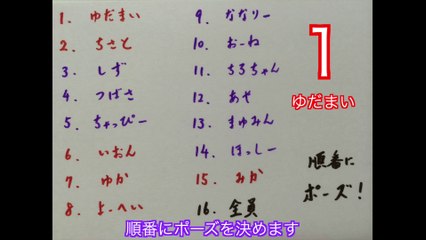 1. ゆだまい
2. ちさと
3. しず
4. つばさ
5. ちゃっぴー
6. いおん
7. ゆか
8. よーへい
9. ななりー
10. おーね
11. ちろちゃん
12. あや
13. まゆみん
14. ほっしー
15. みか
16. 全員
1
ゆだまい
順番に
ポーズ!
順番にポーズを決めます